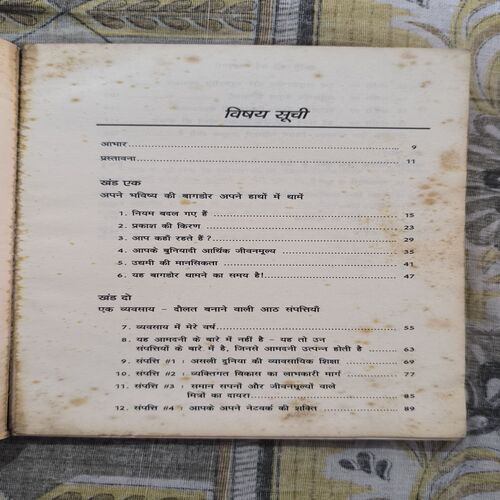 विषय सूची
आभार ... 9
प्रस्तावना ... 11
खंड एक
अपने भविष्य की बागडोर अपने हाथों में थामें
1. नियम बदल गए हैं ... 15
2. प्रकाश की किरण ... 23
3. आप कहाँ रहते हैं ? ... 29
4. आपके बुनियादी आर्थिक जीवनमूल्य ... 35
5. उद्यमी की मानसिकता ... 41
6. यह बागडोर थामने का समय है! ... 47
खंड दो
एक व्यवसाय – दौलत बनाने वाली आठ संपत्तियाँ
7. व्यवसाय में मेरे वर्ष ... 55
8. यह आमदनी के बारे में नहीं है – यह तो उन
संपत्तियों के बारे में है, जिनसे आमदनी उत्पन्न होती है ... 63
9. संपत्ति #1 : असली दुनिया की व्यावसायिक शिक्षा ... 69
10. संपत्ति #2 : व्यक्तिगत विकास का लाभकारी मार्ग ... 77
11. संपत्ति #3 : समान सपनों और जीवनमूल्यों वाले
मित्रों का दायरा ... 85
12. संपत्ति #4 : आपके अपने नेटवर्क की शक्ति ... 89